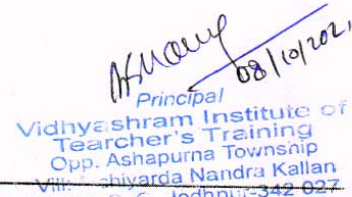 08/10/202,
Principal
Vidhyashram Institute of
Tearcher's Training
Opp. Ashapurna Township
Nandra Kallan
Jodhpur-342 027